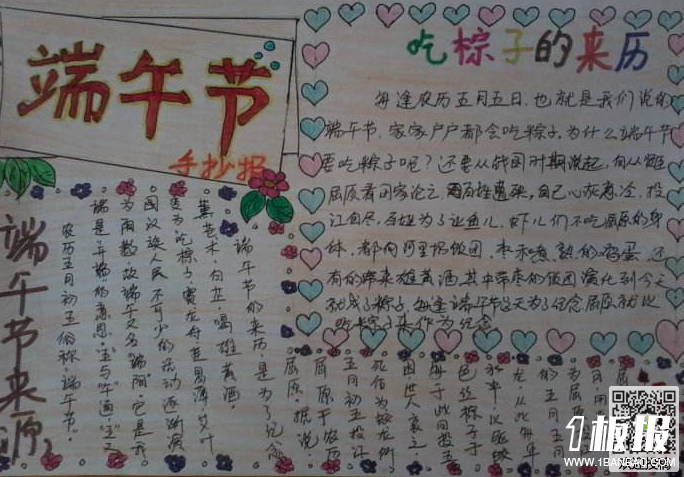 端午节
手抄报
吃棕子的来历
每逢农历五月五日,也就是我们说的
端午节,家家户户都会吃粽子,为什么端午节
要吃粽子呢?还要从战国时期说起,
屈原看国家论亡,百姓遭殃,自己心灰意冷,投
江自尽,百姓为了让鱼儿、虾儿们不吃屈原的身
体,都向河里扔饭团、枣米、煮熟的鸡蛋,还
有的带来雄黄酒,其中带枣的饭团演化到今天
就成了粽子,每逢端午节这天为了纪念屈原就以
吃粽子来作为纪念
端午节来源
农历五月初五俗称"端午节"。
端是"开端"的意思,"五"与"午"通,"五"又
为阳数,故端午又名"端阳",它是我
国汉族人民不可少的活动逐渐演
变为吃粽子,赛龙舟,
薰苍术、白芷,喝雄黄酒。
端午节的来历,是为了纪念
屈原。据说,
屈原于农历
五月初五投江
死后为蛟龙所
困,世人哀之
每于此日投五
色丝粽子于
水中,以驱蛟
龙
1板报
WWW.1BANBAO.COM